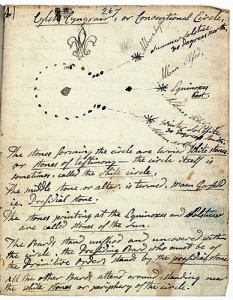 267
Cylch Cyngrair, or Conventional Circle,
summer solstice
Equinoxes
East.
The stones forming the circle are termed white stones
or stones of — the circle itself is
sometimes called the white circle.
The middle stone or altar is termed, Maen Gorsedd
i.e. Presidial stone.
The stones pointing at the Equinoxes and solstices
are called stones of the Sun.
The Bards stand unshod and uncovered within
the circle, the Presidial Bard who must be of
the Primitive Order stands by the presidial stone
All the other Bards attend around standing near
the white stones or periphery of the circle.